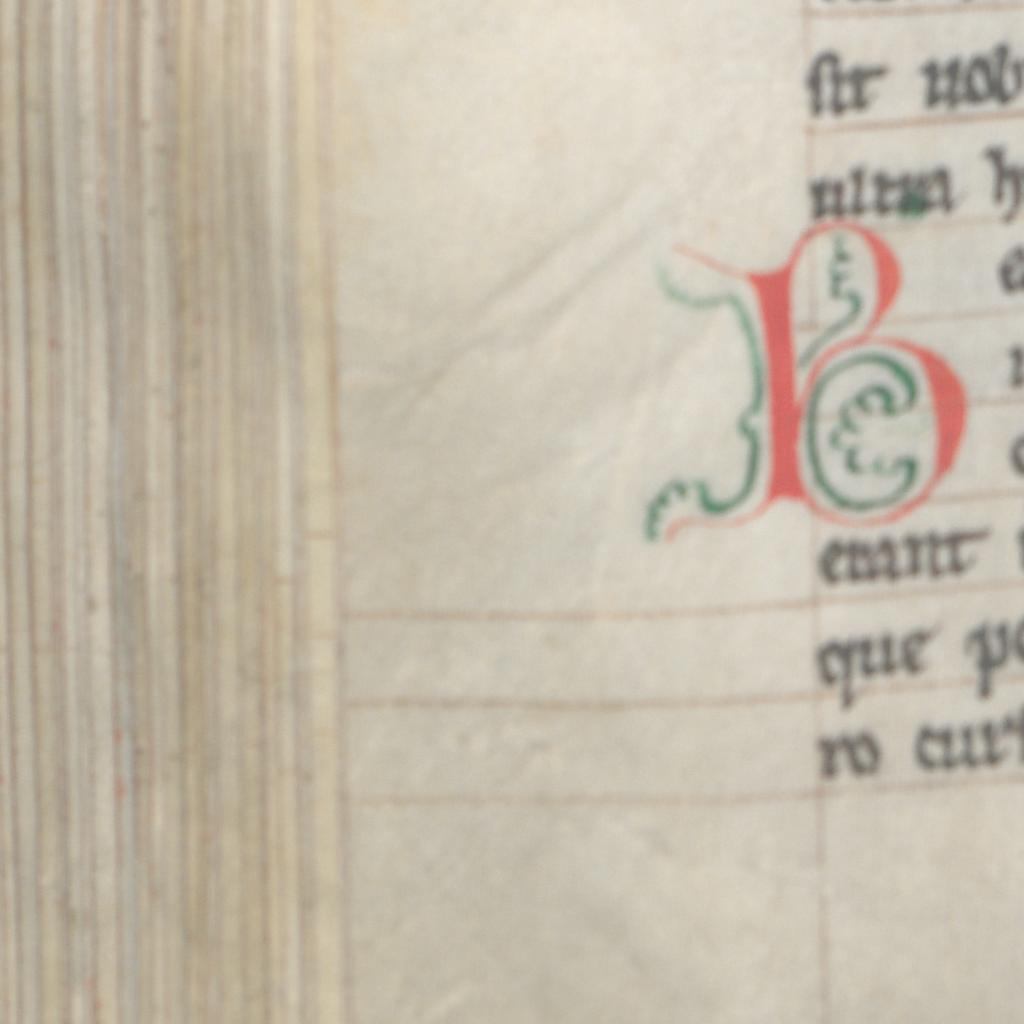 sit nob
ultra h
B e
erant
que po
ro curs